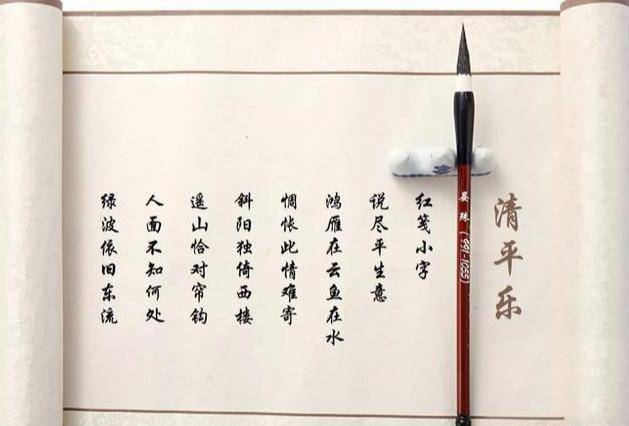 清平乐
晏殊(991-1055)
红笺小字
说尽平生意
鸿雁在云鱼在水
惆怅此情难寄
斜阳独倚西楼
遥山恰对帘钩
人面不知何处
绿波依旧东流